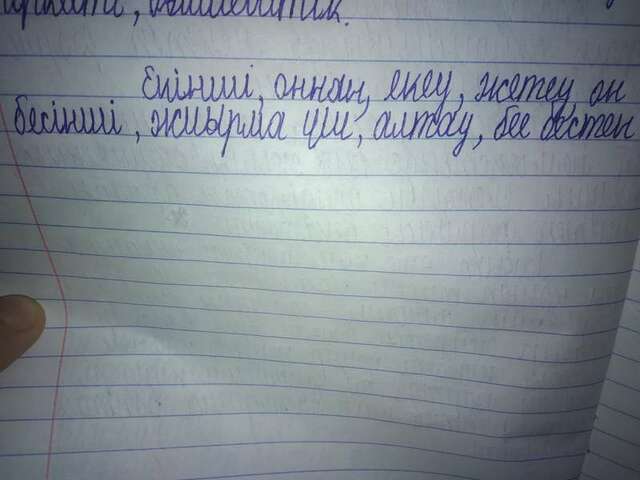 Екінші, оннан, екеу, жетеу, он
бесінші, жиырма үш, алтау, бес бестен